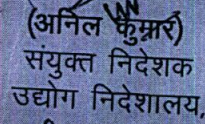 (अनिल कुमार)
संयुक्त निदेशक
उद्योग निदेशालय,